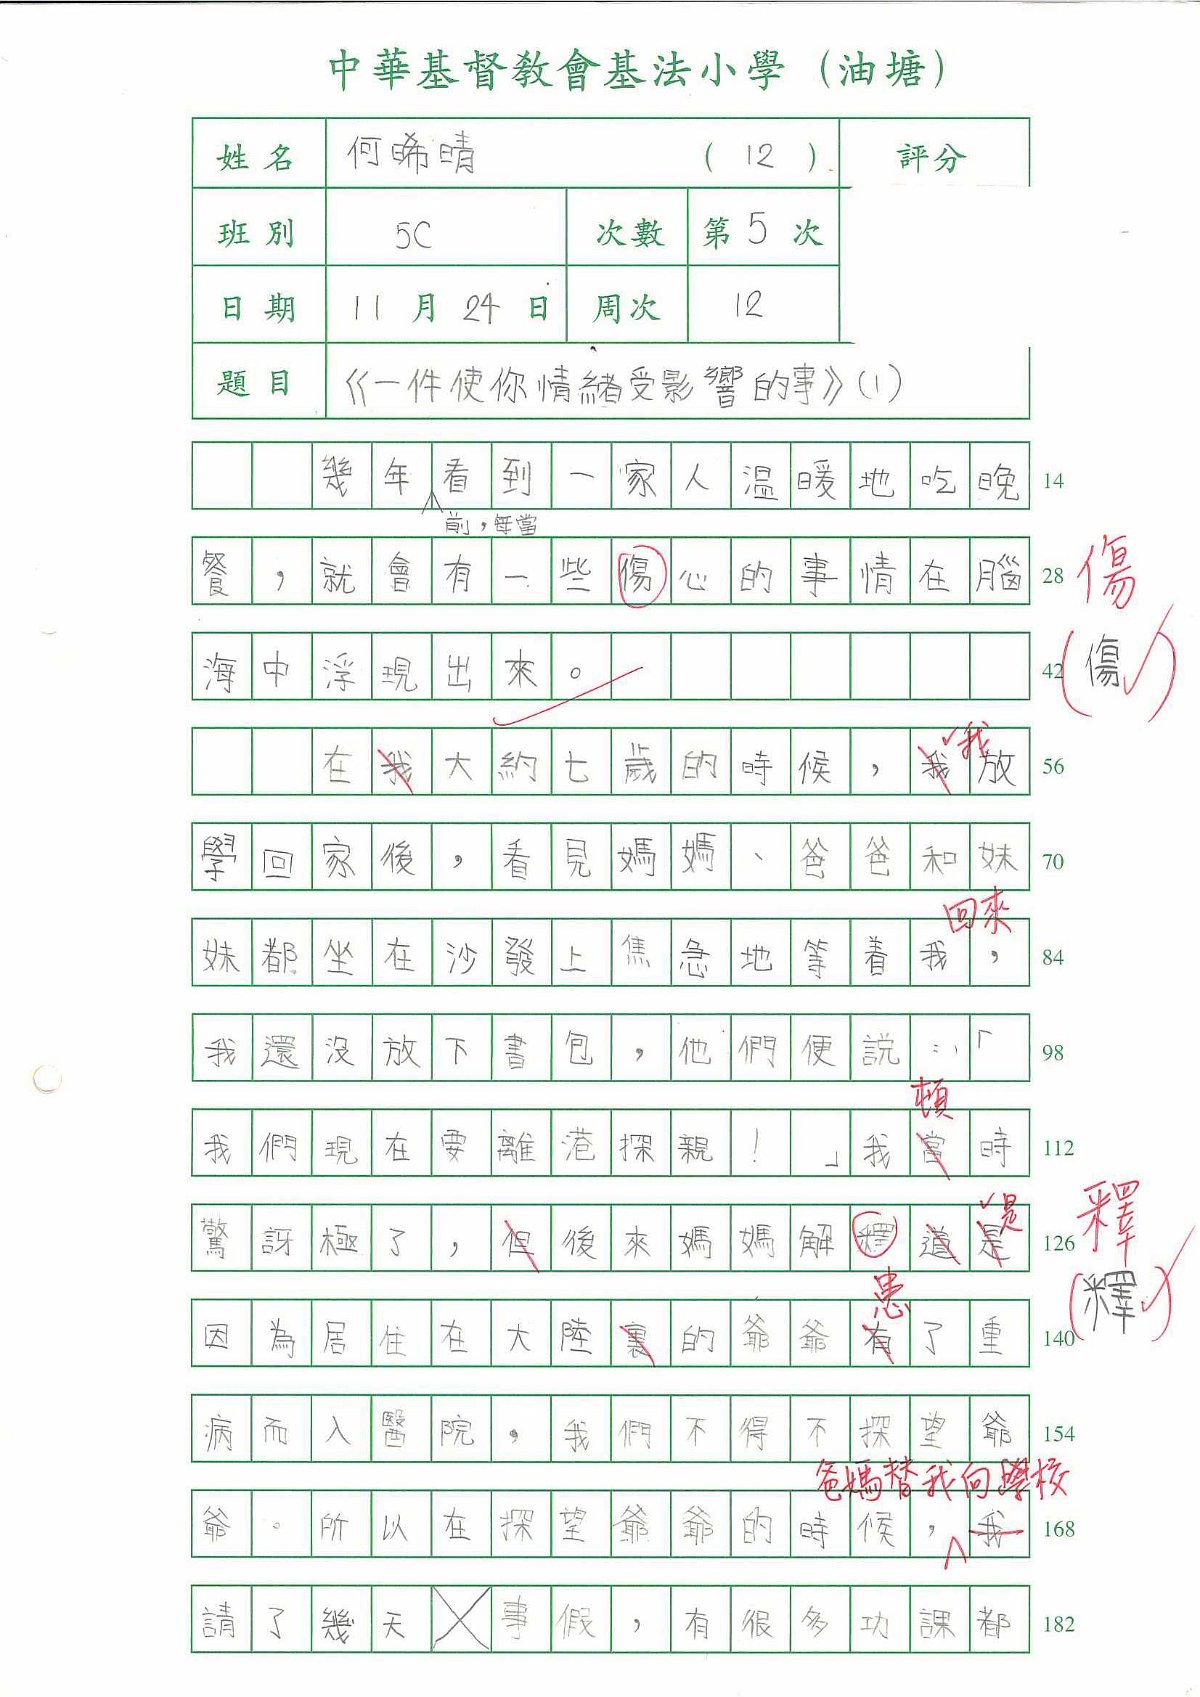 中華基督教會基法小學（油塘）
姓名 何晞晴 （12） 評分
班別 5C 次數 第5次
日期 11月24日 周次 12
題目 《一件使你情緒受影響的事》（1）
幾年看到一家人溫暖地吃晚 14
前，每當
餐，就會有一些傷心的事情在腦 28 傷
海中浮現出來。 42 （傷）
我
在我大約七歲的時候，我放 56
學回家後，看見媽媽、爸爸和妹 70
回來
妹都坐在沙發上焦急地等着我， 84
我還沒放下書包，他們便説：「 98
頓
我們現在要離港探親！」我當時 112
是
驚訝極了，但後來媽媽解釋道是 126 釋
患
因為居住在大陸裏的爺爺有了重 140 （釋）
病而入醫院，我們不得不探望爺 154
爸媽替我向學校
爺。所以在探望爺爺的時候，我 168
請了幾天事假，有很多功課都 182